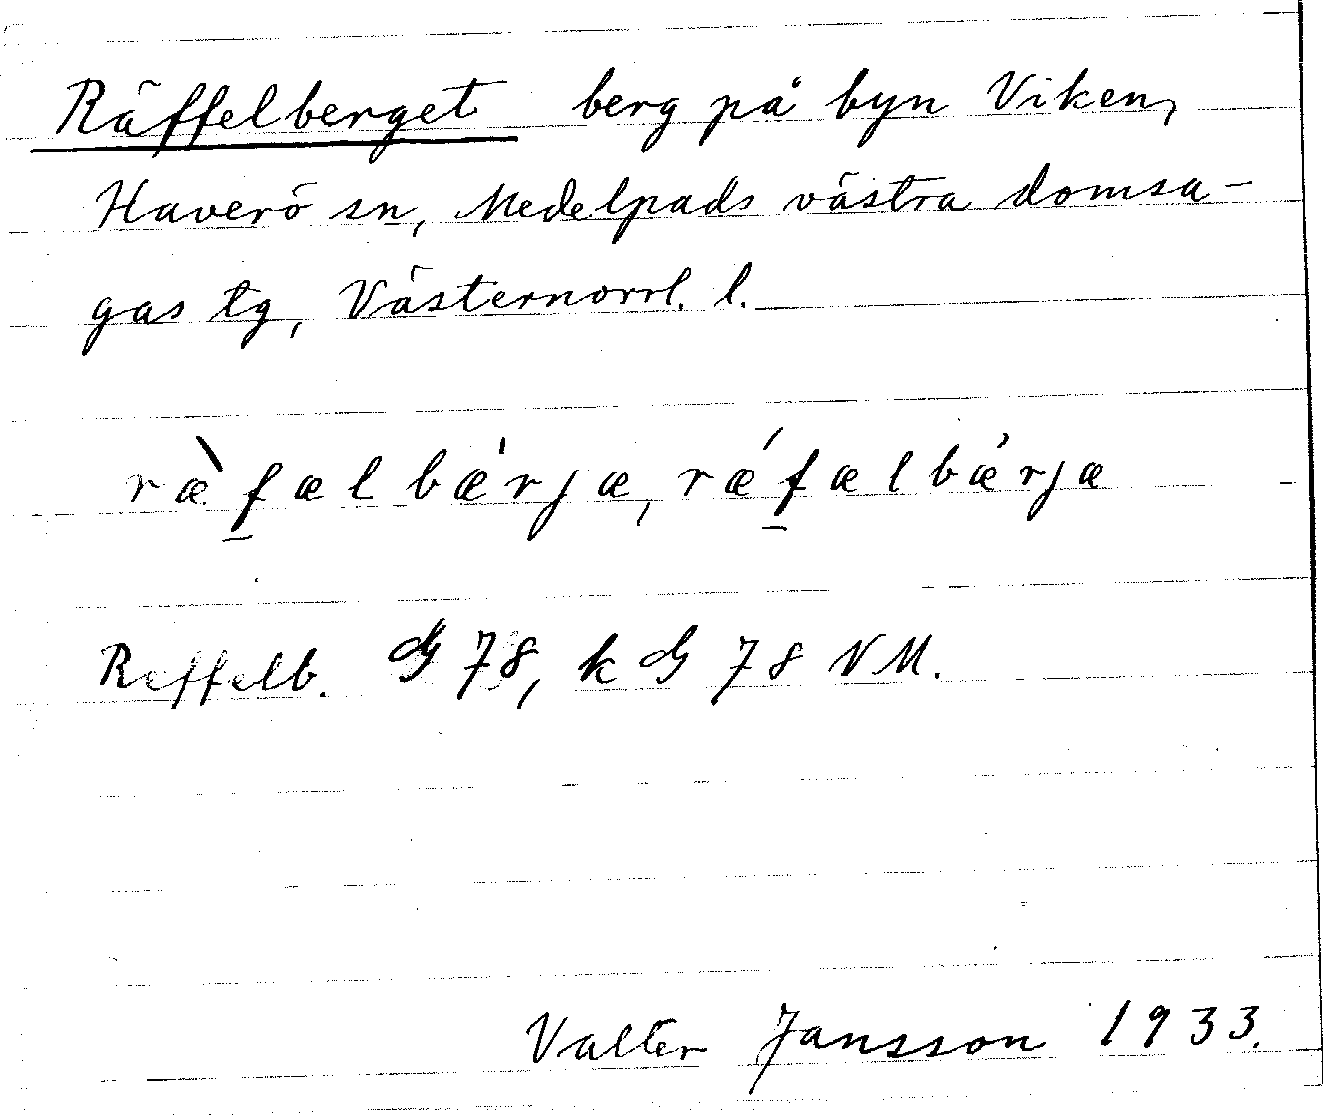 Räffelberget berg på byn Viken,
Haverö sn, Medelpads västra domsa-
gas tg, Västernorrl. l.
ræ̀f̱ælbæ'rjæ, rǽf̱ælbæ'rjæ
Reffelb. G 78, k G 78 NM.
Valter Jansson 1933.